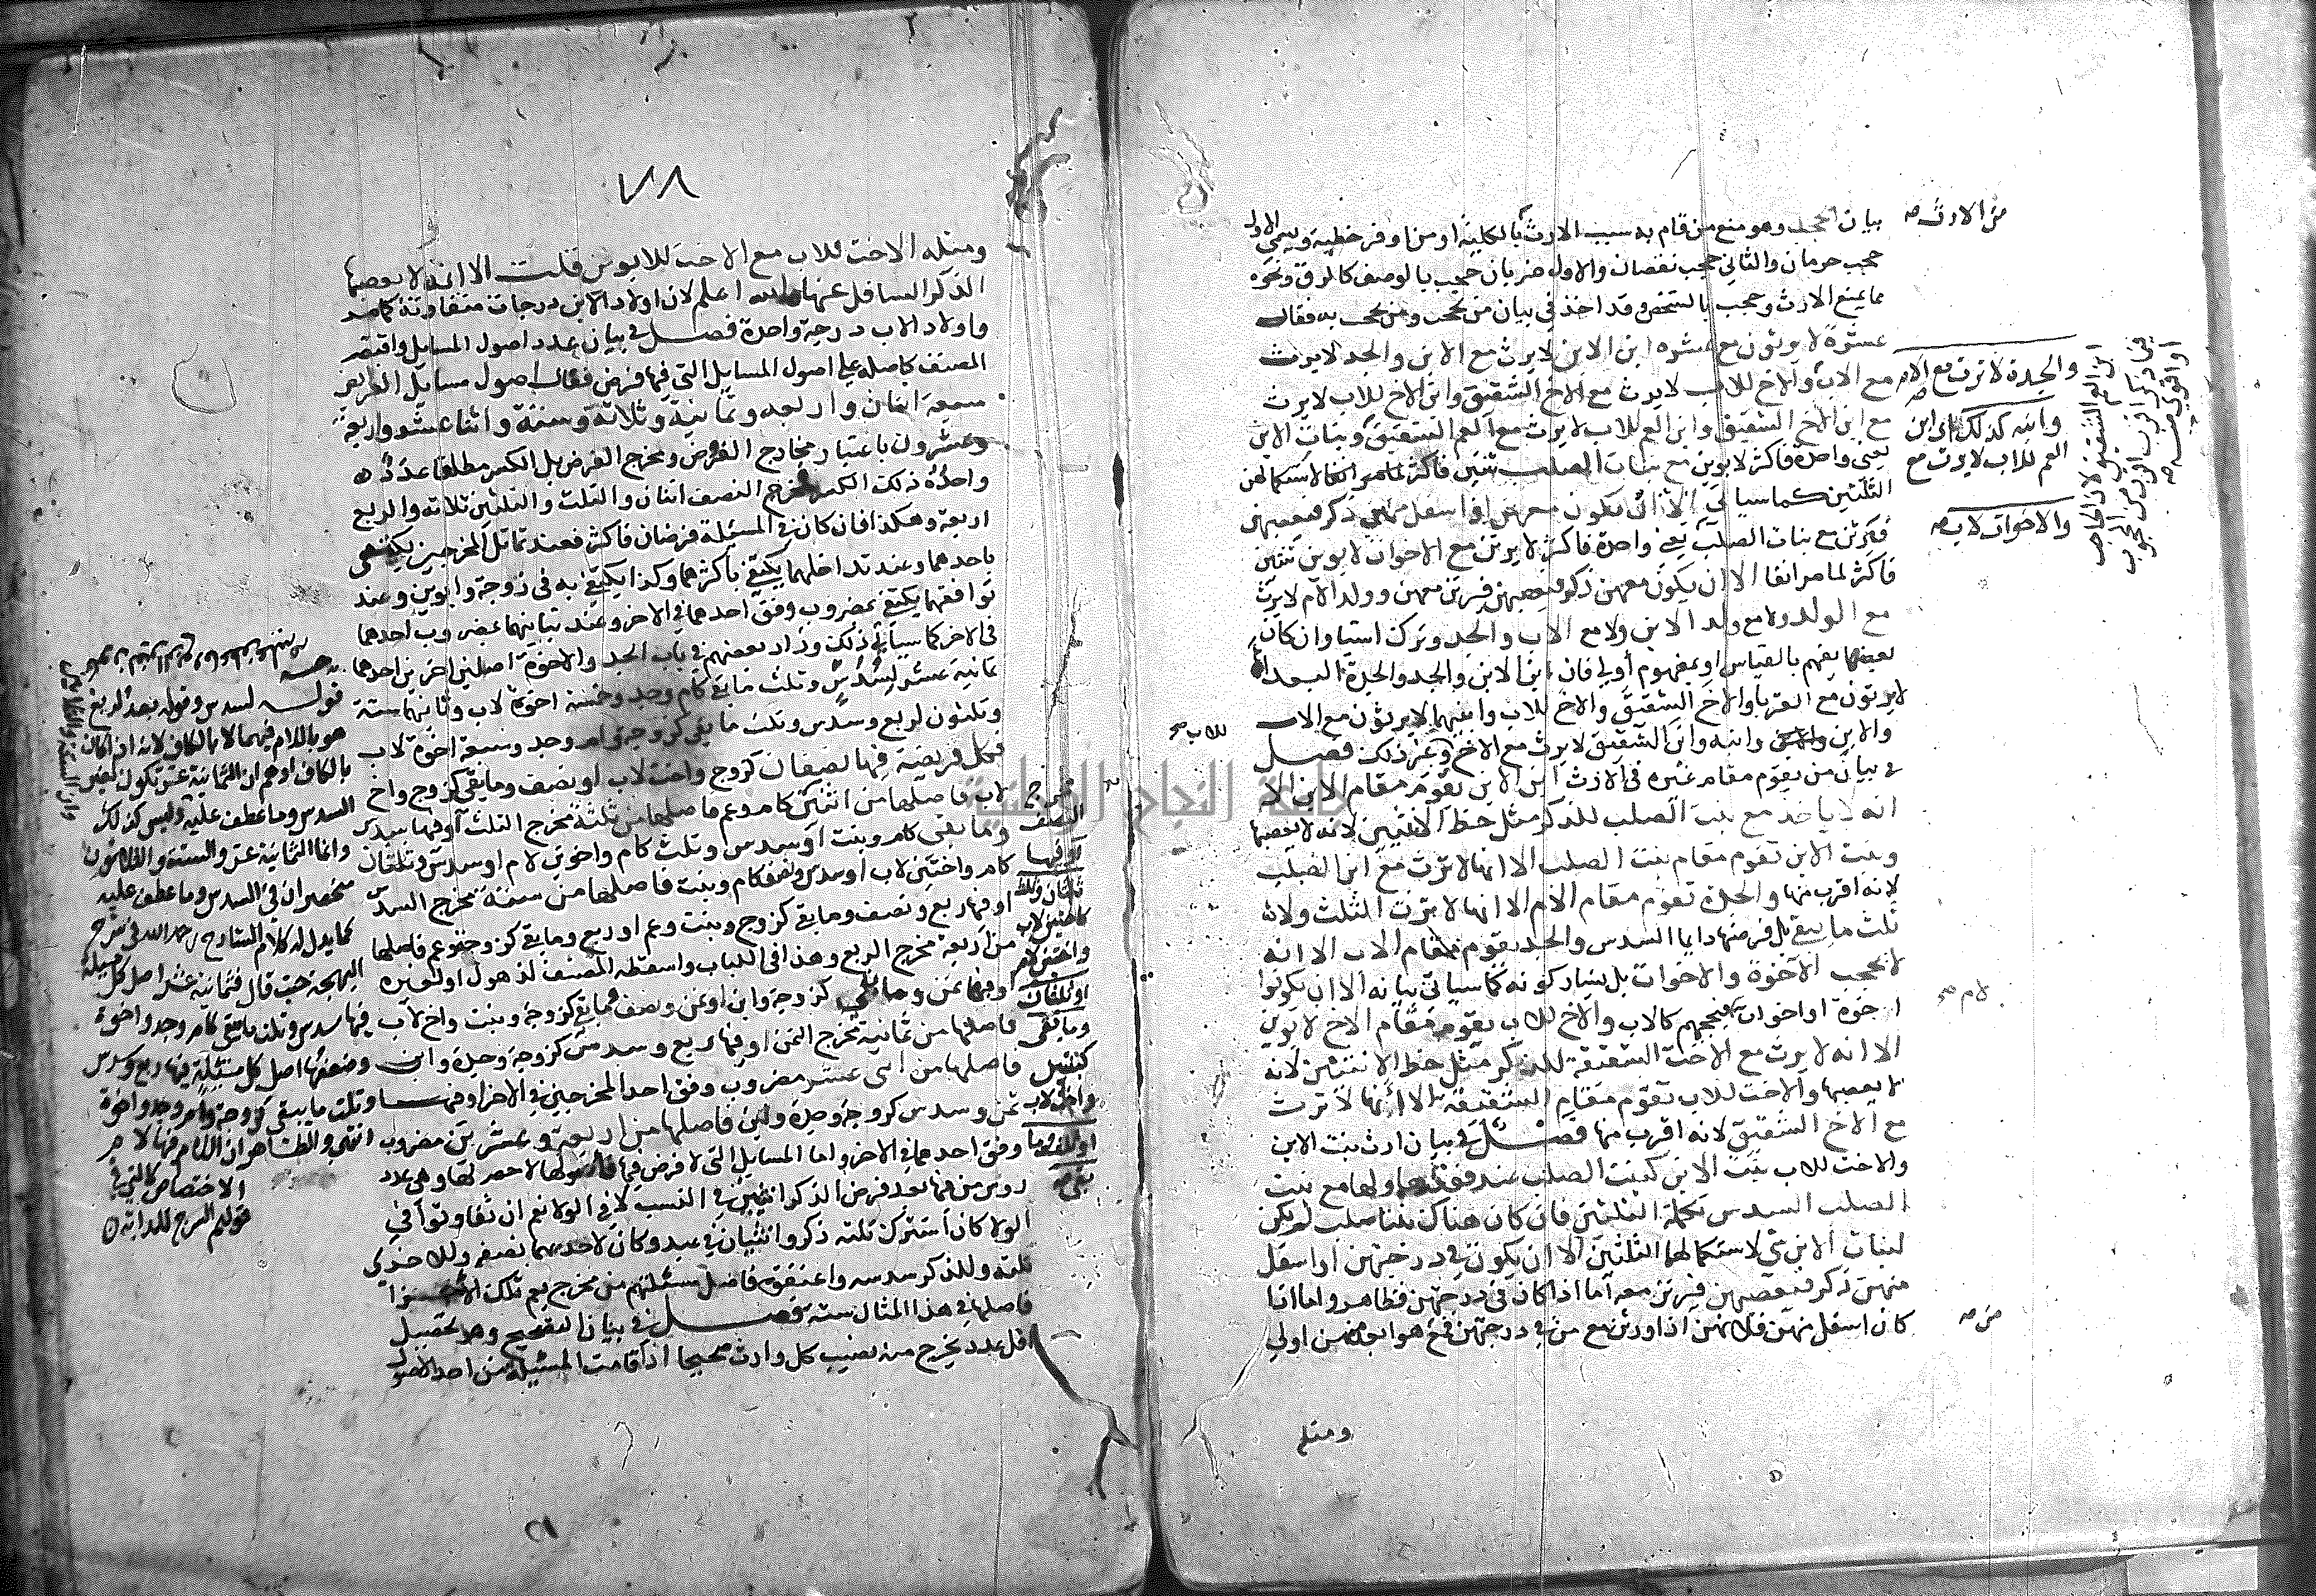 بيان الحجب وهو منع من قام به سبب الارث بالكلية او من اوفر حظيه ويسمي الاول
حجب حرمان والثاني حجب نقصان والاول ضربان حجب بالوصف كالرق ونحوه
مما يمنع الارث وحجب بالشخص وقد اخذ في بيان من يحجب ومن يحجب به فقال
عشرة لا يرثون مع عشره ابن الابن لا يرث مع الابن والجد لا يرث
مع الاب والاخ للاب لا يرث مع الاخ الشقيق وابن الاخ للاب لا يرث
مع ابن الاخ الشقيق وابن العم للاب لا يرث مع العم الشقيق وبنات الابن
يعني واحدة فاكثر لا يرثن مع بنات الصلب ثنتين فاكثر لاستكمالهن
الثلثين كما سياتي الا ان يكون معهن او اسفل منهن ذكر فيعصبهن
فيرثن مع بنات الصلب يعني واحدة فاكثر لا يرثن مع الاخوات لابوين ثنتين
فاكثر لما مر انفا الا ان يكون معهن ذكر فيعصبهن فيرثن معهن وولد الام لا يرث
مع الولد ولا مع ولد الابن ولا مع الاب والجد وترك اشيا وان كان
بعضها يفهم بالقياس او بمفهوم أولي فان ابن الابن والجد والجدة البعدا
لا يرثون مع القربا والاخ الشقيق والاخ للاب وابنيهما لا يرثون مع الاب
والابن وابنه وابن الشقيق لا يرث مع الاخ وغير ذلك فصل
في بيان من يقوم مقام غيره في الارث ابن الابن يقوم مقام الابن الا
انه لا ياخذ مع بنت الصلب للذكر مثل حظ الانثيين لانه لا يعصبها
وبنت الابن تقوم مقام بنت الصلب الا انها لا ترث مع ابن الصلب
لانه اقرب منها والجدة تقوم مقام الام الا انها لا ترث الثلث ولا
ثلث ما يبقي بل فرضها دايما السدس والجد يقوم مقام الاب الا انه
لا يحجب الاخوة والاخوات بل يشاركونه كما سياتي بيانه الا ان يكونوا
اخوة او اخوات فيحجبهم كالاب والاخ للاب يقوم مقام الاخ لابوين
الا انه لا يرث مع الاخت الشقيقة للذكر مثل حظ الانثيين لانه
لا يعصبها والاخت للاب تقوم مقام الشقيقة الا انها لا ترث
مع الاخ الشقيق لانه اقرب منها فصل في بيان ارث بنت الابن
والاخت للاب بنت الابن كبنت الصلب عند فقدها ولها مع بنت
الصلب السدس تكملة الثلثين فان كان هناك بنتا صلب لم يكن
لبنات الابن شي لاستكمالها الثلثين الا ان يكون في درجتهن او اسفل
منهن ذكر فيعصبهن فيرثن معه اما اذا كان في درجتهن فظاهر واما اذا
كان اسفل منهن فلانهن اذا ورثن مع من في درجتهن فمع هو ابعد منهن اولي
ومثله
من الارث صح
والجدة لا ترث مع الام صح
وابنه كذلك اي ابن
العم للاب لا يرث مع
والاخوات لاب صح
للاب صح
لام صح
من صح
٧٨
ومثله الاخت للاب مع الاخت للابوين قلت الا انه لا يعصبها
الذكر السافل عنها والله اعلم لان اولاد الابن درجات متفاوتة كما مر
واولاد الاب درجة واحدة فصل في بيان عدد اصول المسايل واقتصر
المصنف كاصله علي اصول المسايل التي فيها فرض فقال اصول مسايل الفرايض
سبعة اثنان واربعه وثمانية وثلاثة وستة واثنا عشر واربعة
وعشرون باعتبار مخارج الفروض ومخرج الفرض بل الكسر مطلقا عدد
واحده ذلك الكسر فمخرج النصف اثنان والثلث والثلثين ثلاثه والربع
اربعة وهكذا فان كان في المسئلة فرضان فاكثر فعند تماثل المخرجين يكتفي
باحدهما وعند تداخلهما يكتفي باكثرهما وكذا يكتفي به في زوجة وابوين وعند
توافقهما يكتفي بمضروب وفق احدهما في الاخر وعند تباينهما بمضروب احدهما
في الاخر كما سياتي ذلك وزاد بعضهم في باب الجد والاخوة اصلين اخرين احدهما
ثمانية عشر لسدس وثلث ما بقي كام وجد وخمسة اخوة لاب وثانيهما ستة
وثلثون لربع وسدس وثلث ما بقي كزوجة وام وجد وسبعة اخوة لاب
فكل فريضة فيها نصفان كزوج واخت لاب او نصف وما بقي كزوج واخ
لاب فاصلها من اثنين كام وعم فاصلها من ثلثة مخرج الثلث او فيها سدس
وما بقي كام وبنت او سدس وثلث كام واخوين لام او سدس وثلثان
كام واختين لاب او سدس ونصف كام وبنت فاصلها من ستة مخرج السدس
او فيها ربع ونصف وما بقي كزوج وبنت وعم او ربع وما بقي كزوجة وعم فاصلها
من اربعة مخرج الربع وهذا في اللباب واسقطه المصنف لذهول او لغيره
او فيها ثمن وما بقي كزوجة وابن او ثمن ونصف وما بقي كزوجة وبنت واخ لاب
فاصلها من ثمانية مخرج الثمن او فيها ربع وسدس كزوجة وجدة وابن
فاصلها من اثني عشر مضروب وفق احد المخرجين في الاخر او فيها
ثمن وسدس كزوجة وجدة وابن فاصلها من اربعة وعشرين مضروب
وفق احدهما في الاخر واما المسايل التي لا فرض فيها فاصولها لا حصر لها وهي عدد
روس من فيها بعد فرض الذكر انثيين في النسب لا في الولا نعم ان تفاوتوا في
الولا كان استرك ثلثه ذكر وانثيان في عبد وكان لاحديهما نصفه وللاخري
ثلثه وللذكر سدسه واعتقوه فاصل مسئلتهم من مخرج يعم تلك الاجزا
فاصلها في هذا المثال ستة فصل في بيان التصحيح وهو تحصيل
اقل عدد يخرج منه نصيب كل وارث صحيحا اذا قامت المسئلة من احد الاصول
مخرج
النصف
او فيها
ثلثان وثلث
كاختين لاب
واختين لام
او ثلثان
وما بقي
كبنتين
واخ لاب
او ثلث وما
بقي صح
قوله لسدس وقوله بعد لربع
هو باللام فيهما لا بالكاف لانه اذا كان
بالكاف اوهم ان الثمانية عشر تكون لغير
السدس وما عطف عليه وليس كذلك
وانما الثمانية عشر والستة والثلاثون
منحصران في السدس وما عطف عليه
كما يدل له كلام الشارح رحمه الله في شرح
البهجة حيث قال فثمانية عشر اصل كل مسيلة
فيها سدس وثلث ما يبقي كام وجد واخوة
وضعفها اصل كل مسئلة فيها ربع وسدس
وثلث ما يبقي كزوجة وام وجد واخوة
انتهي والظاهر ان اللام فيها لام
الاختصاص كالتي في
قولهم السرج للدابة